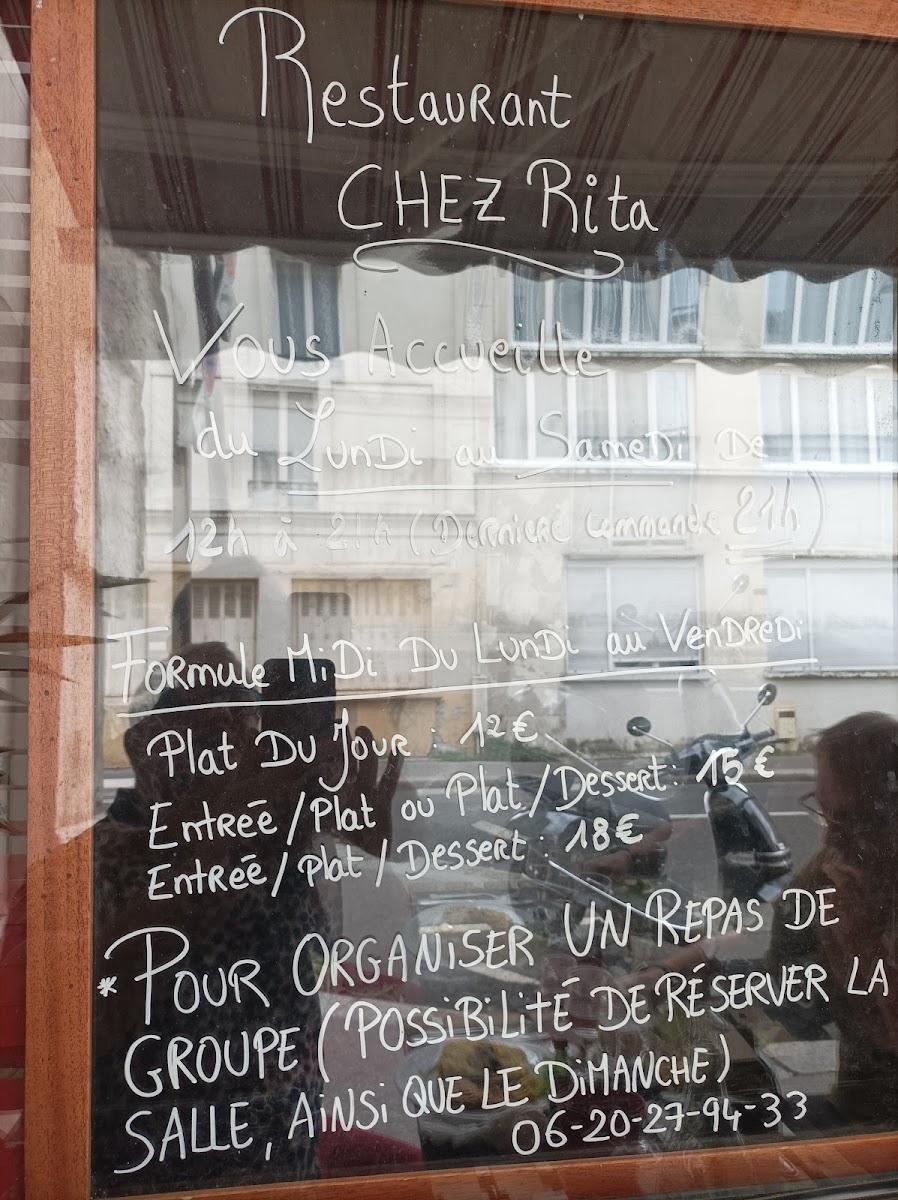 Restaurant
CHEZ Rita
Vous Accueille
du Lundi au Samedi De
12h à 21h (Dernière Commande 21h)
Formule Midi Du Lundi au Vendredi
Plat Du Jour : 12€
Entrée/Plat ou Plat/Dessert: 15€
Entrée/Plat/Dessert : 18€
* POUR ORGANISER UN REPAS DE
GROUPE (POSSIBILITÉ DE RÉSERVER LA
SALLE, AINSI QUE LE DIMANCHE)
06-20-27-94-33